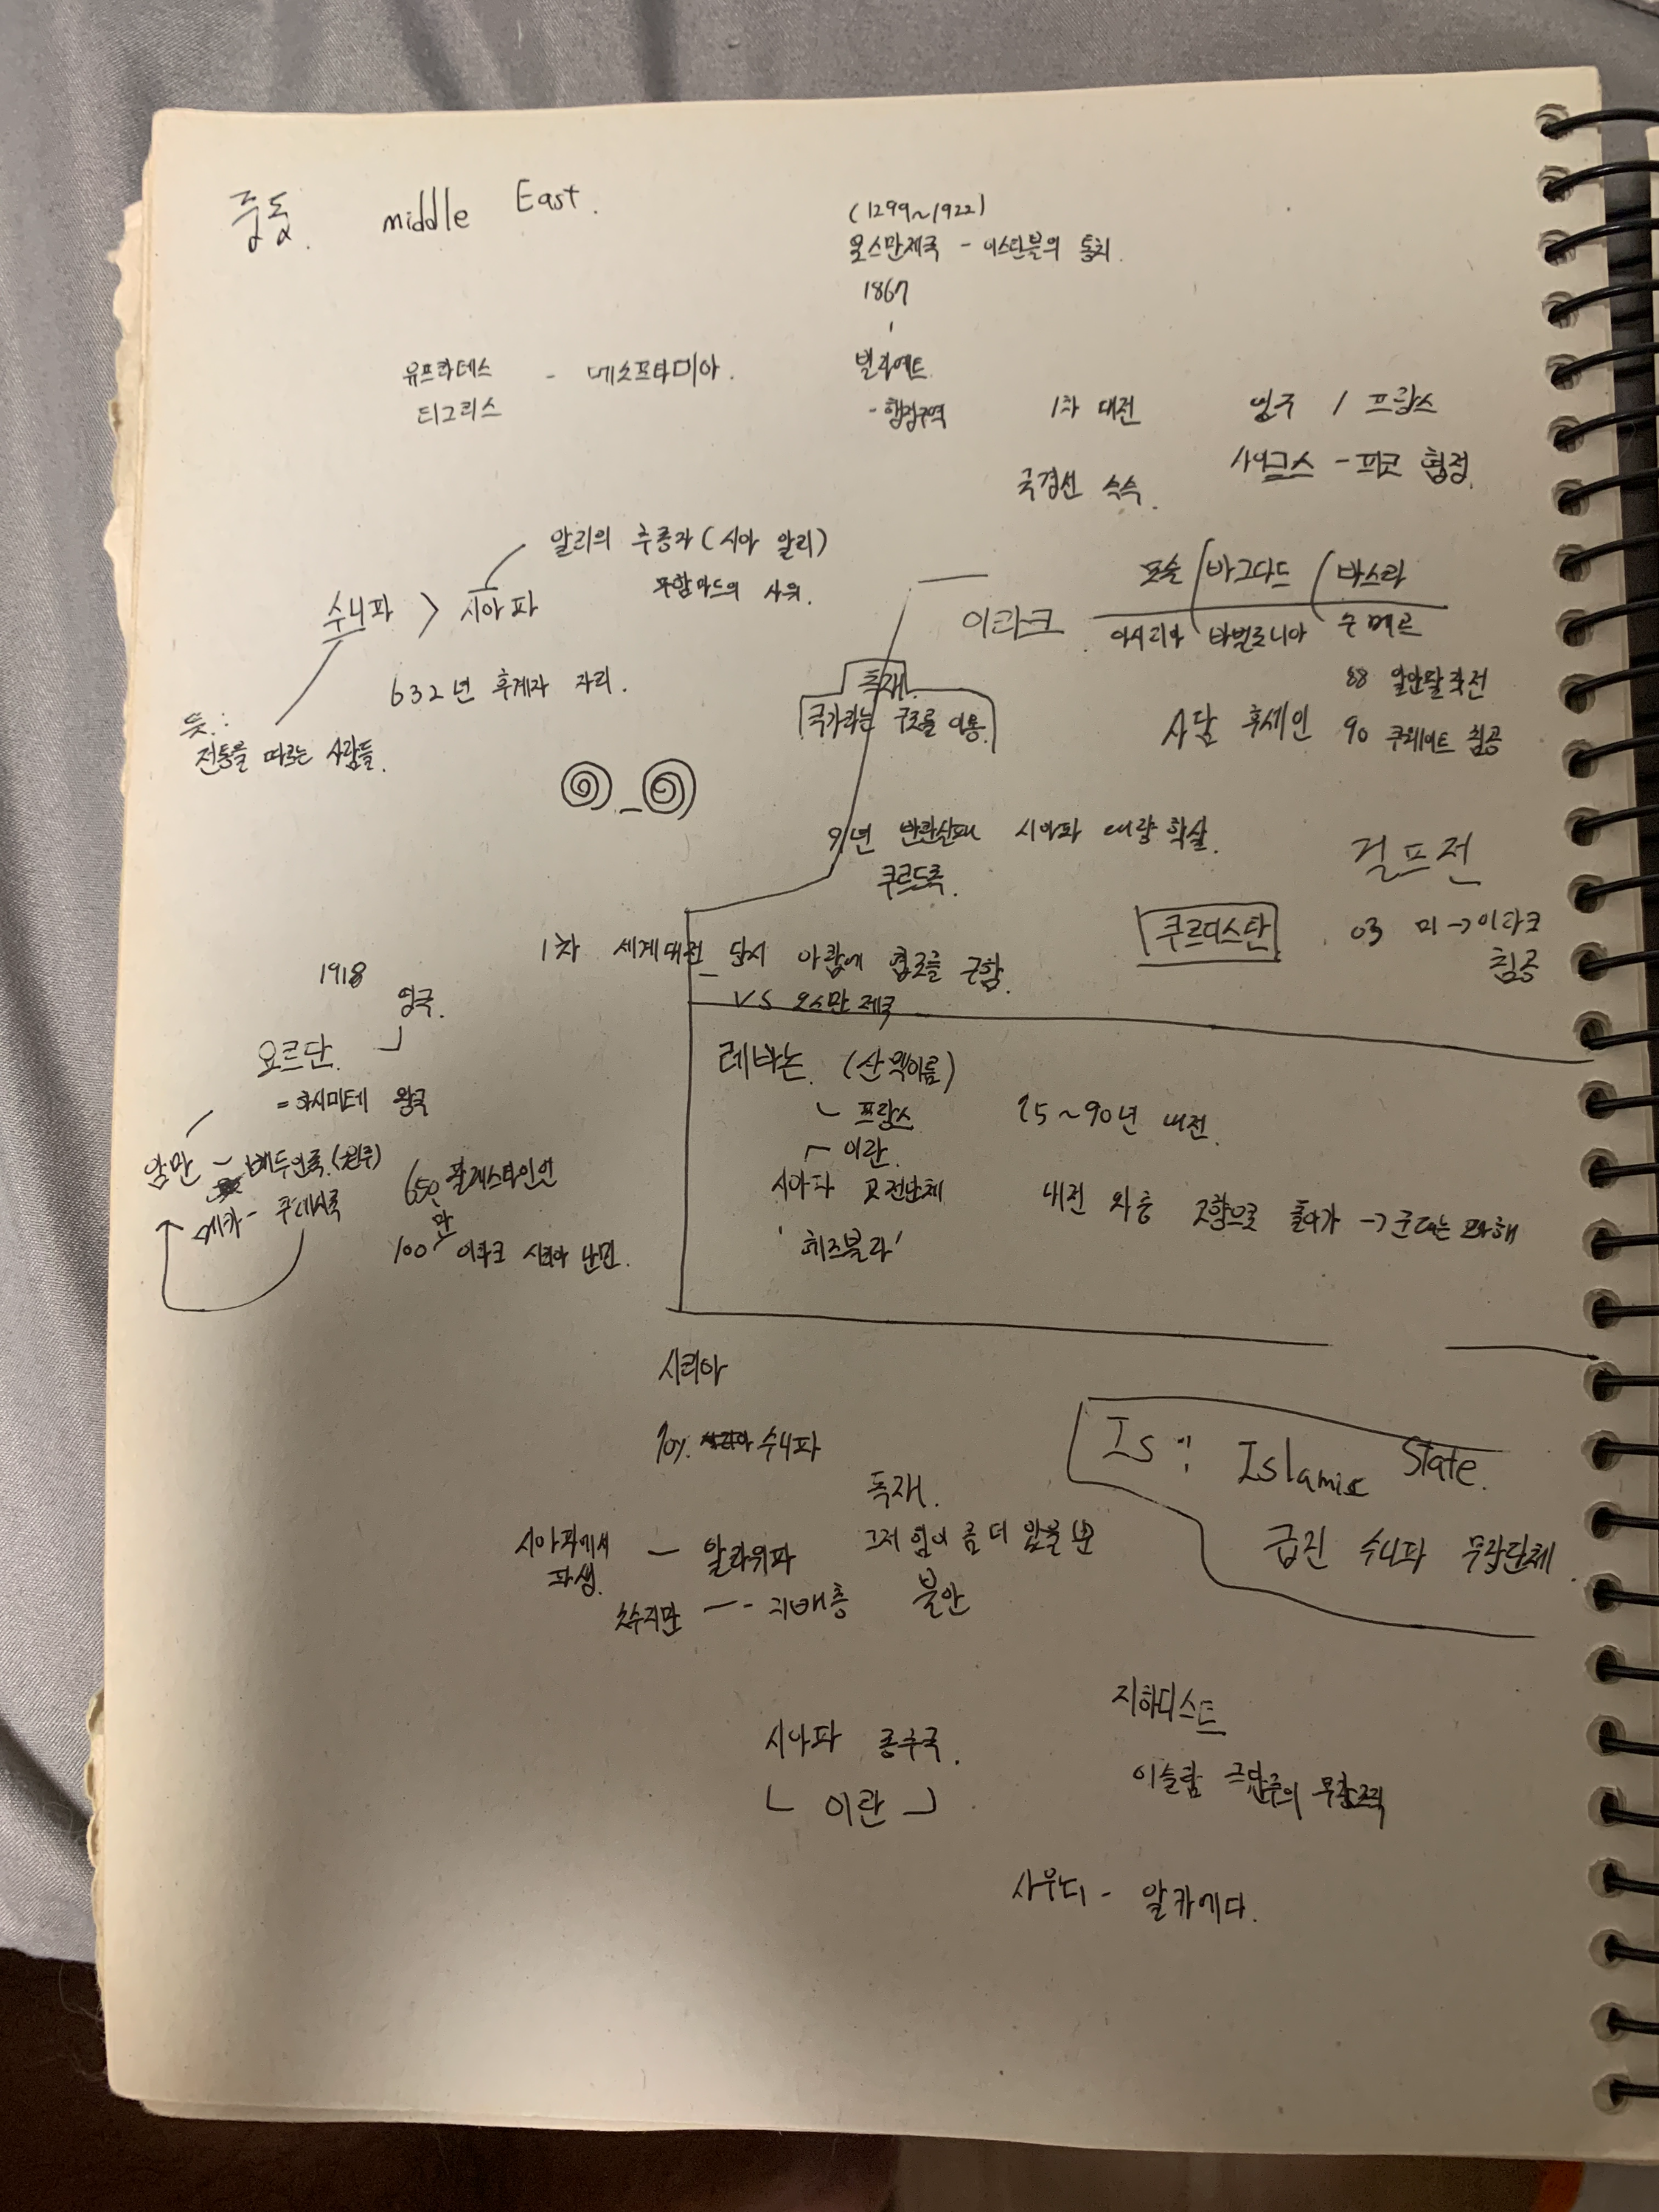 중동. middle East.
(1299~1922)
오스만제국 - 이스탄불의 통치.
1867
빌라예트
- 행정구역
유프라테스 - 메소프타미아.
티그리스
1차 대전
영국 / 프랑스
국경선 쓱쓱.
사이크스 - 피코 협정.
알리의 추종자 (시아 알리)
무함마드의 사위.
수니파 > 시아파
632년 후계자 자리.
뜻:
전통을 따르는 사람들.
모술 / 바그다드 / 바스라
이라크
아시리아 바빌로니아 수메르
독재.
국가라는 구조를 이용.
88 알안팔 작전
사담 후세인 90 쿠웨이트 침공
91년 반란실패 시아파 대량 학살.
쿠르드족.
걸프전
쿠르디스탄
03 미 → 이라크
침공
1차 세계대전 당시 아랍에 협조를 구함.
VS 오스만 제국
1918
영국.
요르단.
= 하시미테 왕국
암만 - 베두인족. (원주)
메카 -
650 팔레스타인인
만
100 이라크 시리아 난민.
레바논. (산맥이름)
프랑스
75~90년 내전.
이란.
시아파 교전단체
'헤즈볼라'
내전 와중 고향으로 돌아가 → 군대는 와해
시리아
70% 수니파
독재.
시아파에서 - 알라위파
파생.
그저 힘이 좀 더 있을 뿐
소수지만 -- 지배층
불안
Is: Islamic State.
급진 수니파 무장단체.
지하디스트
이슬람 극단주의 무장조직
시아파 종주국.
이란
사우디 - 알카에다.